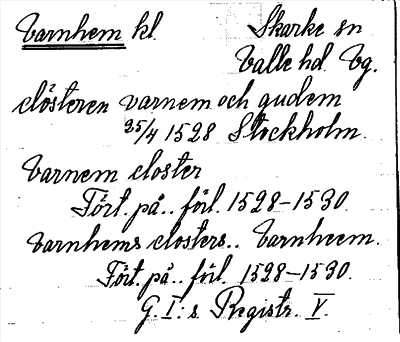 Varnhem kl. Skarke sn
Valle hd. Vg.
clösteren varnem och gudem
25/4 1528 Stockholm.
Varnem closter
Fört. på.. förl. 1528-1530.
Varnhems closters.. Varnheem.
Fört. på.. förl. 1528-1530.
G. I:s Registr. V.